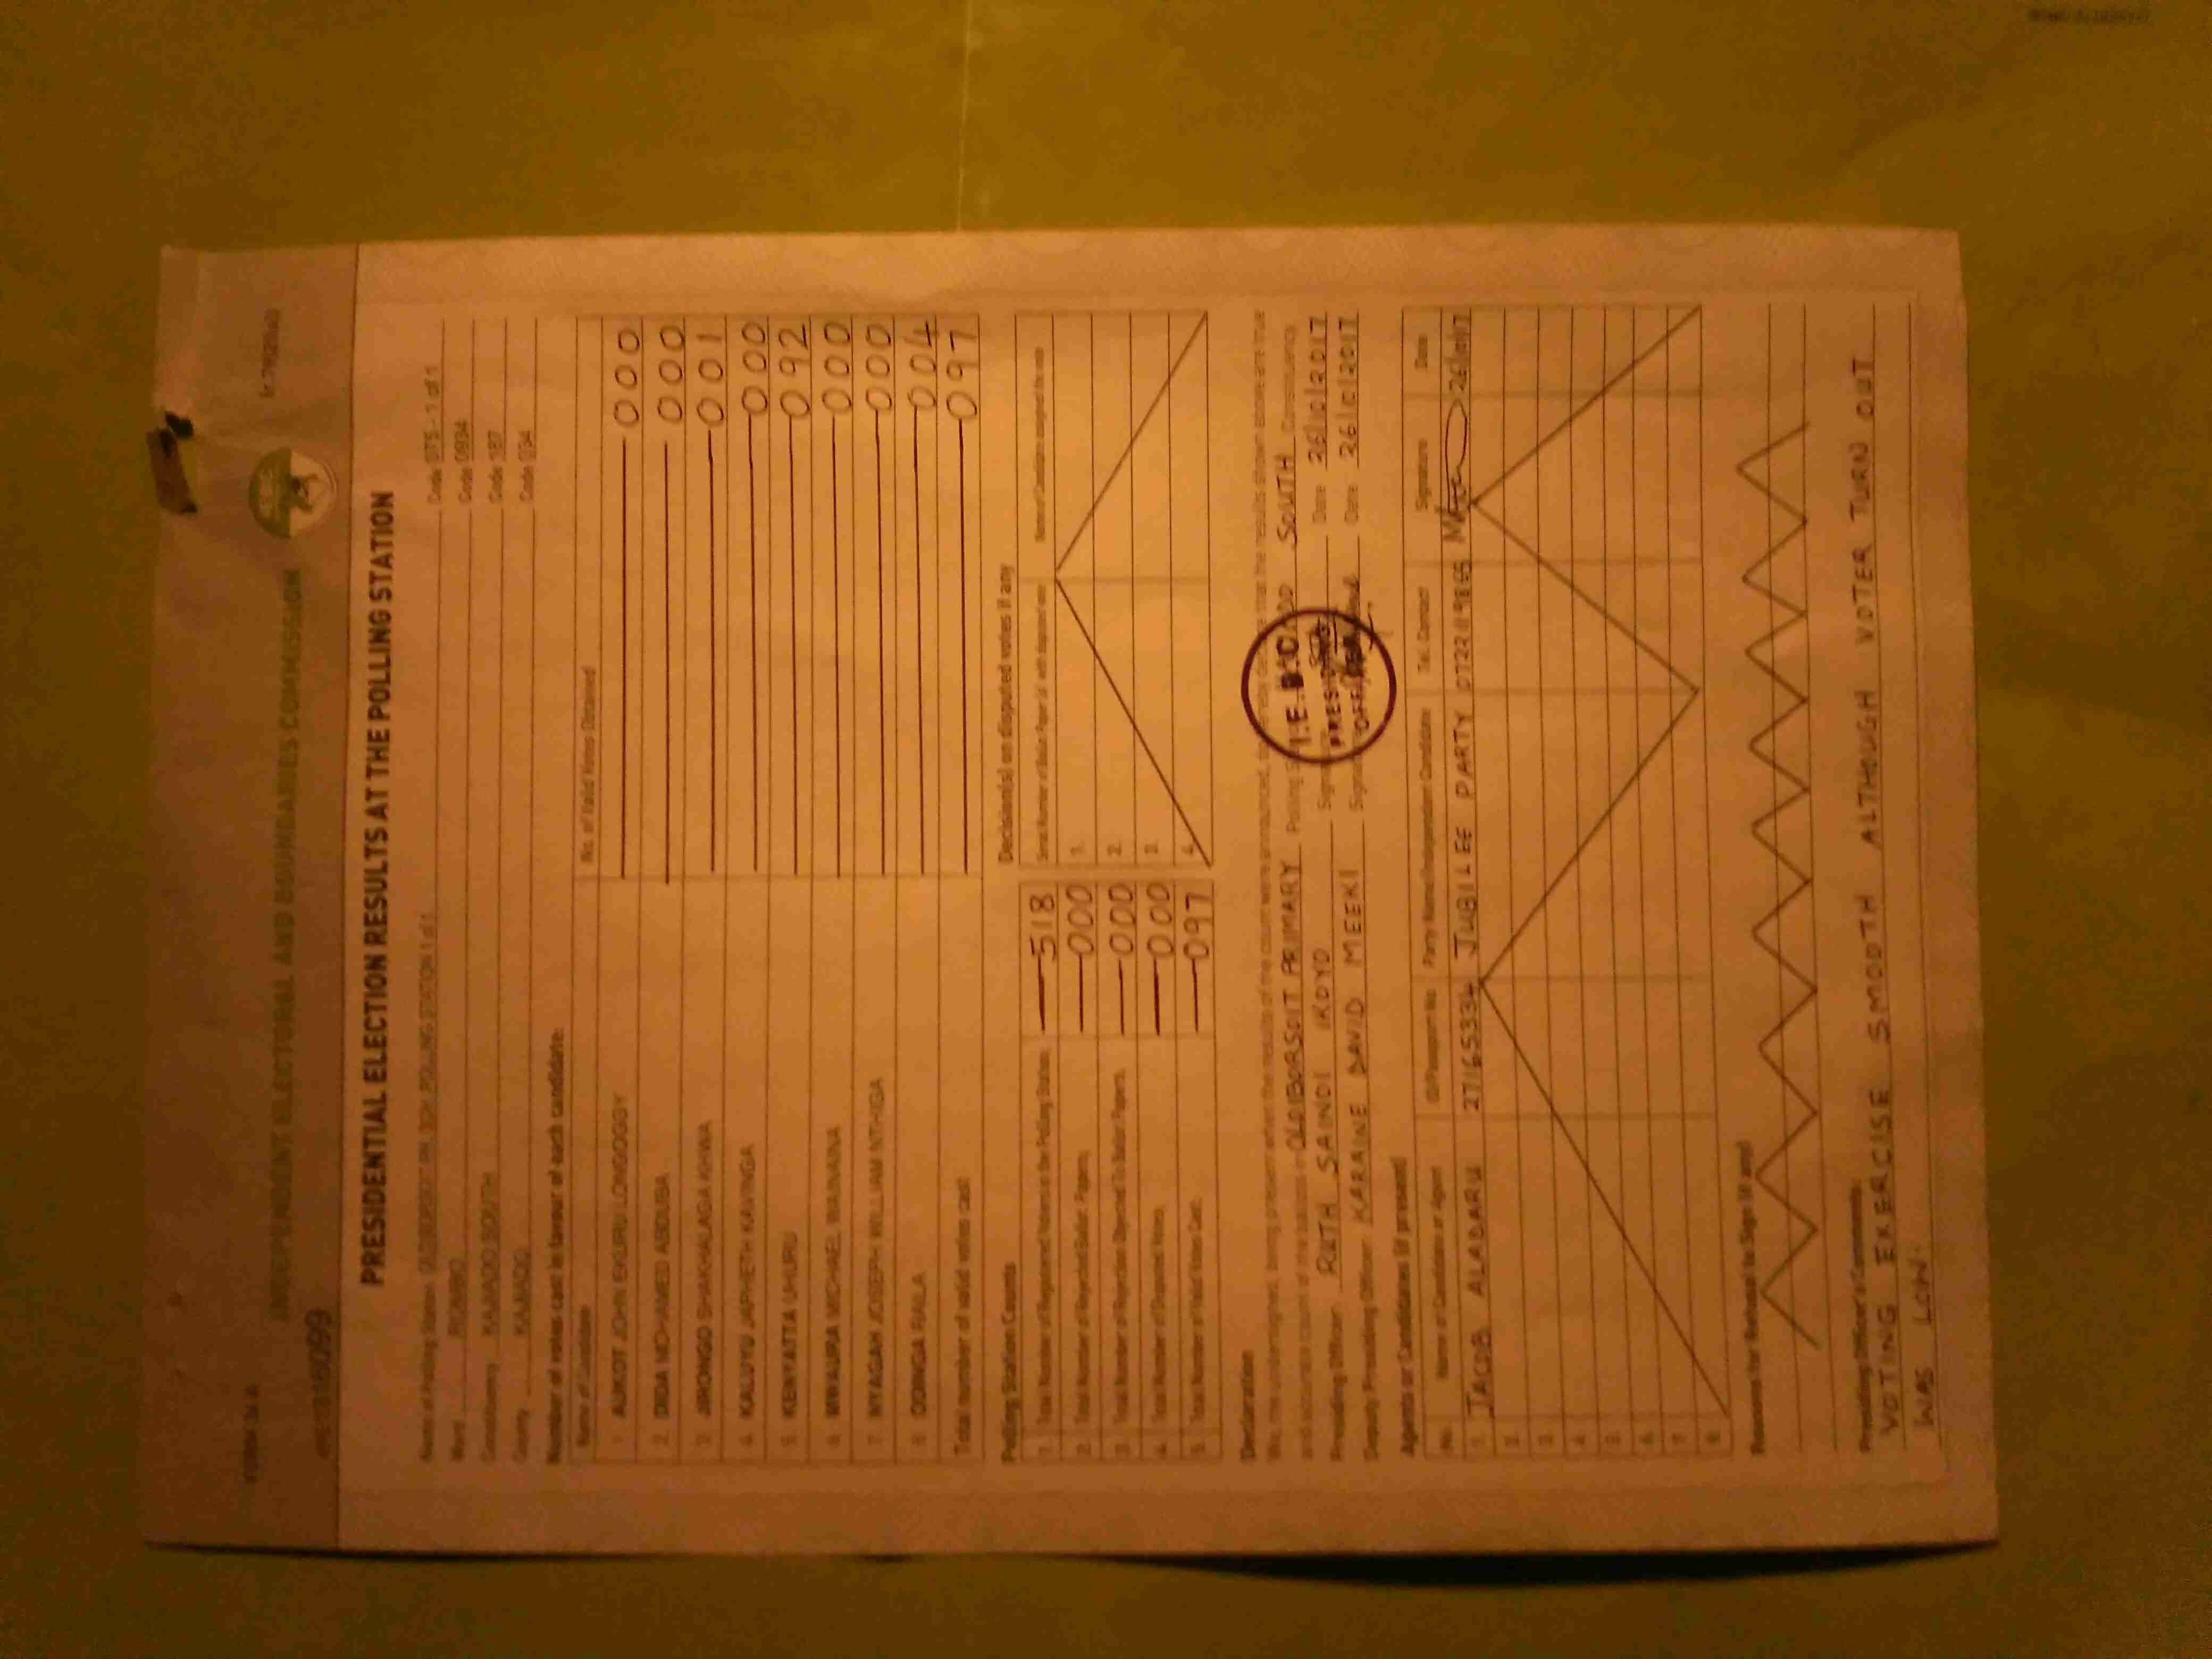 FORM 34 A
INDEPENDENT ELECTORAL AND BOUNDARIES COMMISSION
PRESIDENTIAL ELECTION RESULTS AT THE POLLING STATION
Name of Polling Station POLLING STATION 1 of 1 Code 075 - 1 of 1
Ward ROMBO Code 0934
Constituency KAJIADO SOUTH Code 187
County KAJIADO Code 034
Number of votes cast in favour of each candidate:
Name of Candidate No. of Valid Votes Obtained
1 AUKOT JOHN EKURU LONGOGGY 000
2. DIDA MOHAMED ABDUBA 000
3. JIRONGO SHAKHALAGA KHWA 001
4. KALUYU JAPHETH KAVINGA 000
5. KENYATTA UHURU 092
6. MWAURA MICHAEL WAINAINA 000
7. NYAGAH JOSEPH WILLIAM NTHIGA 000
8 ODINGA RAILA 004
Total number of valid votes cast 097
Polling Station Counts
1. Total Number of Registered Voters in the Polling Station 518
2. Total Number of Rejected Ballot Papers 000
3. Total Number of Rejection Objected To Ballot Papers 000
4. Total Number of Disputed Votes 000
5. Total Number of Valid Votes Cast 097
Decision(s) on disputed votes if any
Serial Number of Ballot Paper (s) with disputed vote Name of Candidate assigned the vote
1.
2.
3.
4.
Declaration
We, the undersigned, being present when the results of the count were announced, do hereby declare that the results shown above are true
and accurate count of the ballots in OLOIBORSOIT PRIMARY Polling SOUTH Constituency
Presiding Officer RUTH SAINDI IKOYO Date 26/10/2017
Deputy Presiding Officer KARAINE DAVID MEEKI Date 26/10/2017
I.E.B.C
PRESIDING
OFFICER
Agents or Candidates (if present)
No. Name of Candidate or Agent ID/Passport No. Party Name/Independent Candidate Tel. Contact Signature Date
1. JACOB ALADARU 27165334 JUBILEE PARTY 26/10/17
2.
3.
4.
5.
6.
7.
8.
Reasons for Refusal to Sign (if any)
Presiding Officer's Comments:
VOTING EXERCISE SMOOTH ALTHOUGH VOTER TURN OUT
WAS LOW.